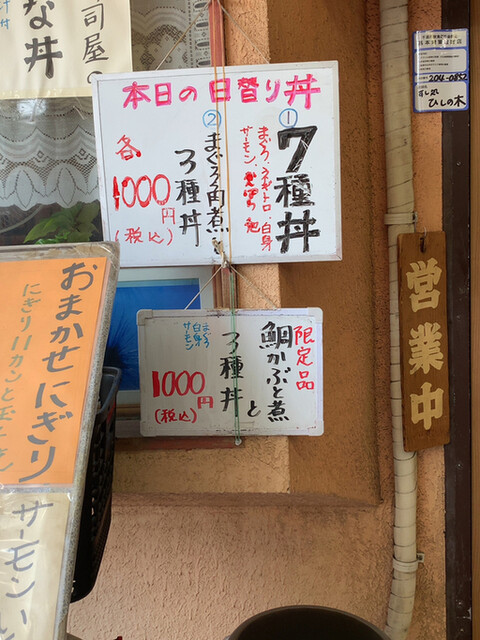 司屋の
な丼
本日の日替り丼
①
7種丼
まぐろ、ネギトロ、白身
サーモン、
②
まぐろ角煮と
3種丼
各
1000円
(税込)
限定品
鯛かぶと煮と
3種丼
まぐろ
白身
サーモン
1000円
(税込)
おまかせにぎり
にぎり11カンと玉
サーモンい
営業中
204-0852
すし処
ひしの木